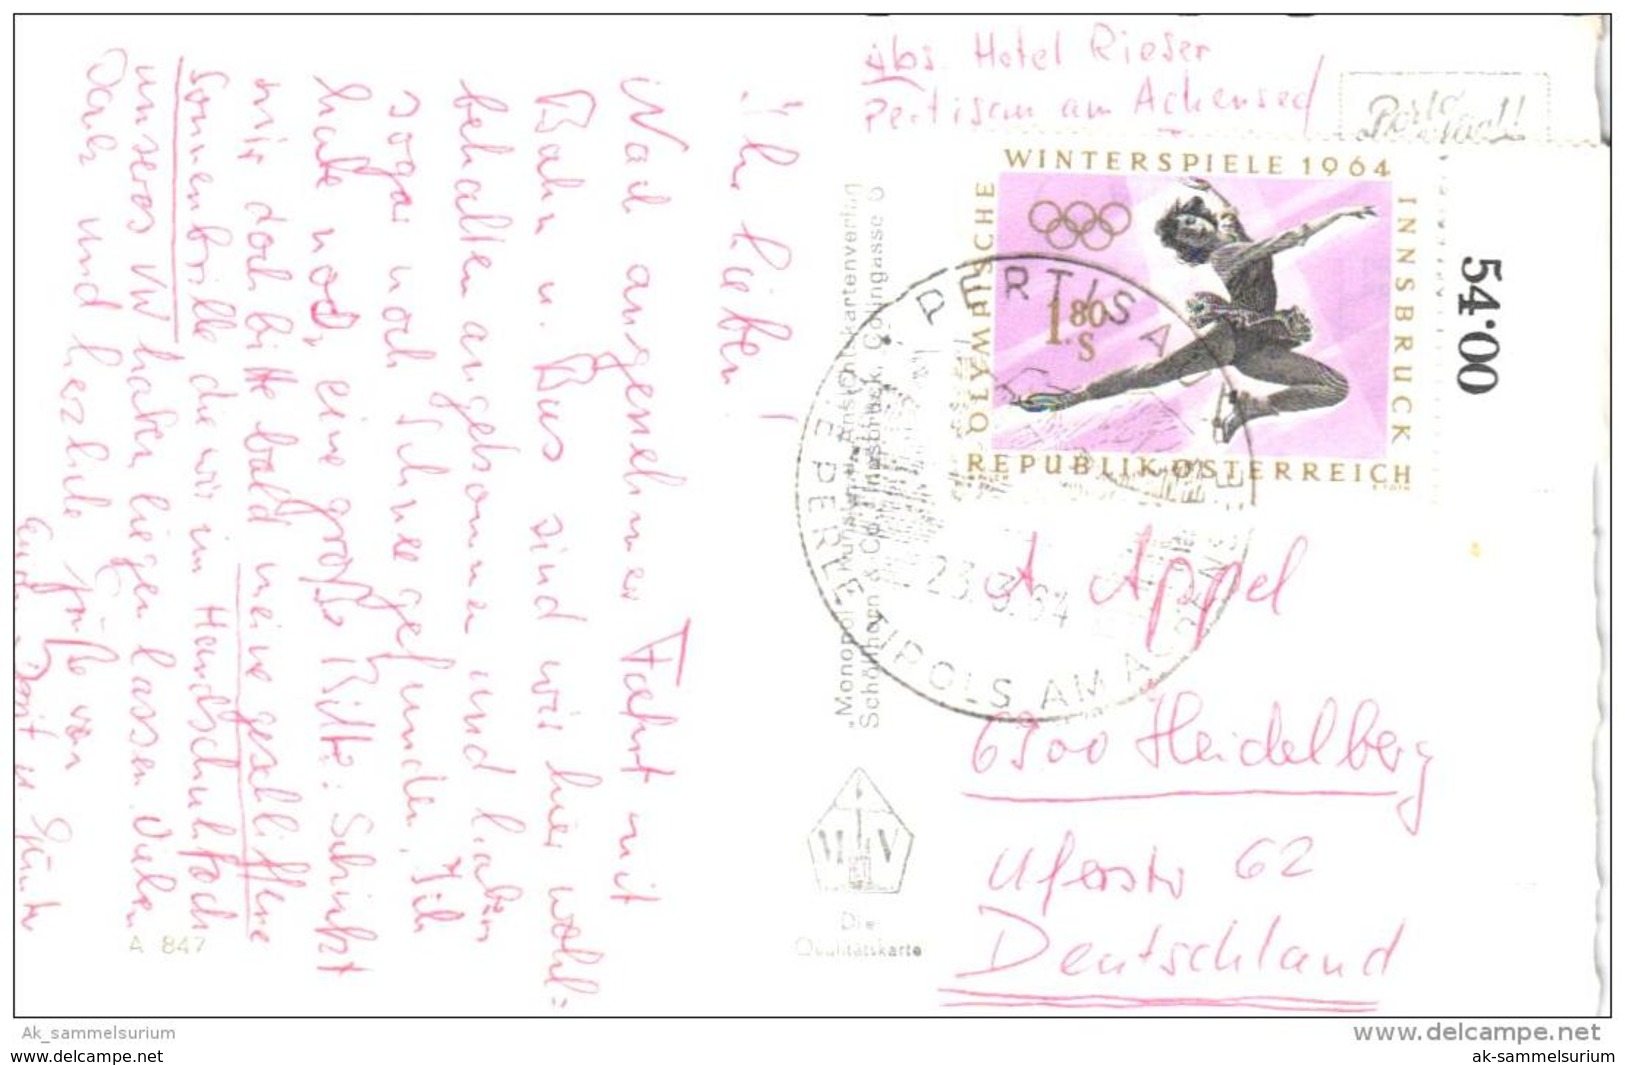 Abs. Hotel Rieser
Pertisau am Achensee
WINTERSPIELE 1964
OLYMPISCHE
INNSBRUCK
1.80
S
REPUBLIK ÖSTERREICH
54·00
PERTISAU
PERLE TIROLS AM ACHENSEE
23.3.64
A. Appel
6900 Heidelberg
Uferstr 62
Deutschland
Ihr Lieben!
Nach angenehmer Fahrt mit
Bahn u. Bus sind wir hier wohl=
behalten angekommen und haben
sogar noch Schnee gefunden. Ich
habe noch eine große Bitte: Schickt
mir doch bitte bald meine geschliffene
Sonnenbrille die wir im Handschuhfach
unseres VW haben liegen lassen. Vielen
Dank und herzliche Grüße von
A 847
Schöllhorn & Co., Innsbruck, Colingasse 6
Die
Qualitätskarte
Ak_sammelsurium
www.delcampe.net
www.delcampe.net
ak-sammelsurium